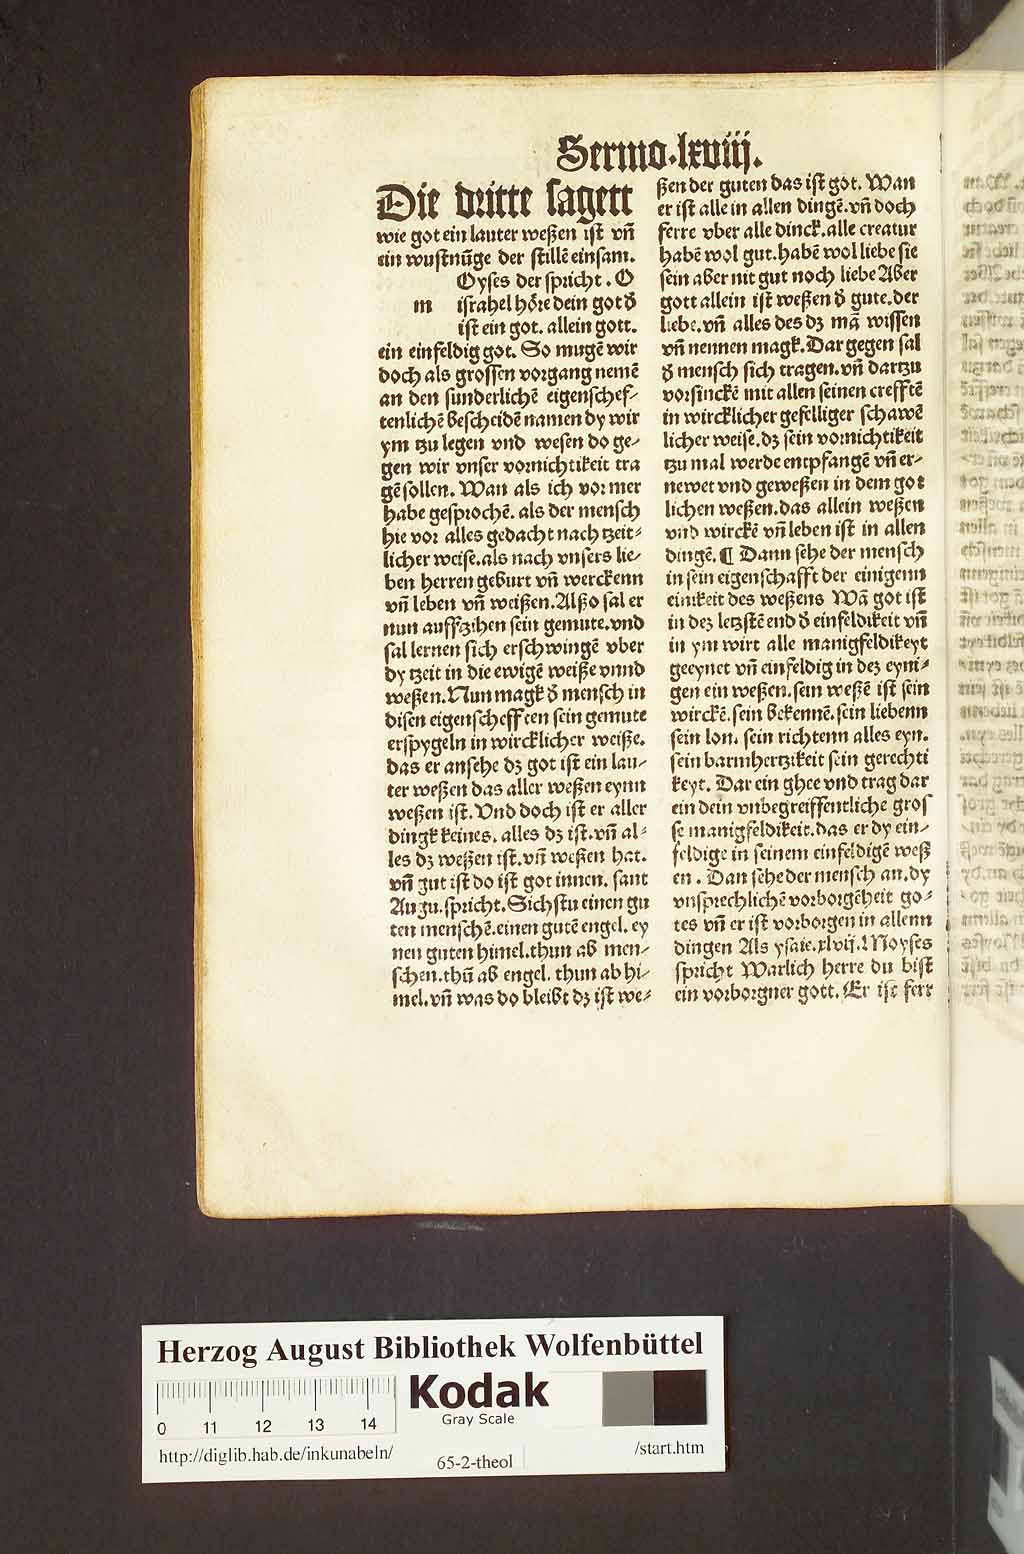 Sermo.lxviij.
Die dritte sagett
wie got ein lauter weßen ist vñ
ein wustnũge der stillẽ einsam.
Oyses der spricht. O
m israhel hőre dein got d̕
ist ein got. allein gott.
ein einfeldig got. So mugẽ wir
doch als grossen vorgang nemẽ
an den sunderlichẽ eigenschef⸗
tenlichẽ bescheidẽ namen dy wir
ym tzu legen vnd wesen do ge⸗
gen wir vnser vornichtikeit tra
gẽ sollen. Wan als ich vor mer
habe gesprochẽ. als der mensch
hie vor alles gedacht nach tzeit⸗
licher weise.als nach vnsers lie⸗
ben herren geburt vñ werckenn
vñ leben vñ weißen. Alßo sal er
nun auffzihen sein gemute.vnd
sal lernen sich erschwingẽ vber
dy tzeit in die ewigẽ weiße vnnd
weßen. Nun magk d̕ mensch in
disen eigenschefften sein gemute
erspygeln in wircklicher weiße.
das er ansehe dz got ist ein lau⸗
ter weßen das aller weßen eynn
weßen ist. Vnd doch ist er aller
dingk keines. alles dz ist.vñ al⸗
les dz weßen ist.vñ weßen hat.
vñ gut ist do ist got innen. sant
Augu.spricht. Sichstu einen gu
ten menschẽ.einen gutẽ engel. ey
nen guten himel.thun ab men⸗
schen.thũ ab engel. thun ab hi⸗
mel.vñ was do bleibt dz ist we⸗
ßen der guten das ist got. Wan
er ist alle in allen dingẽ.vñ doch
ferre vber alle dinck.alle creatur
habẽ wol gut.habẽ wol liebe sie
sein aber nit gut noch liebe Aber
gott allein ist weßen d̕ gute.der
liebe.vñ alles des dz mã wissen
vñ nennen magk. Dar gegen sal
d̕ mensch sich tragen.vñ dartzu
vorsinckẽ mit allen seinen crefftẽ
in wircklicher geselliger schawẽ
licher weise.dz sein vornichtikeit
tzu mal werde entpfangẽ vñ er⸗
newet vnd geweßen in dem got
lichen weßen.das allein weßen
vnd wirckẽ vñ leben ist in allen
dingẽ. ¶ Dann sehe der mensch
in sein eigenschafft der einigenn
einikeit des weßens Wã got ist
in dez letzstẽ end d̕ einfeldikeit vñ
in ym wirt alle manigfeldikeyt
geeynet vñ einfeldig in dez eyni⸗
gen ein weßen.sein weßẽ ist sein
wirckẽ.sein bekennẽ.sein liebenn
sein lon. sein richtenn alles eyn.
sein barmhertzikeit sein gerechti
keyt. Dar ein ghee vnd trag dar
ein dein vnbegreiffentliche gros
se manigfeldikeit.das er dy ein⸗
feldige in seinem einfeldigẽ weß
en. Dan sehe der mensch an.dy
vnsprechlichẽ vorborgẽheit go⸗
tes vñ er ist vorborgen in allenn
dingen Als ysaie.xlvij.Moyses
spricht Warlich herre du bist
ein vorborgner gott. Er ist ferr
Herzog August Bibliothek Wolfenbüttel
0 11 12 13 14
Kodak
Gray Scale
http://diglib.hab.de/inkunabeln/
65-2-theol
/start.htm